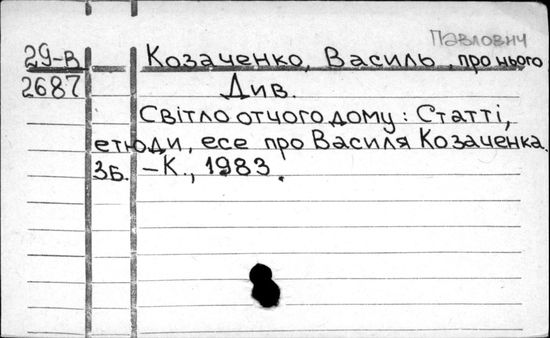 Павлович
29-В Козаченко, Василь, про нього
2687 Див.
Світло отчого дому: Статті,
етюди, есе про Василя Козаченка.
Зб. – К., 1983.